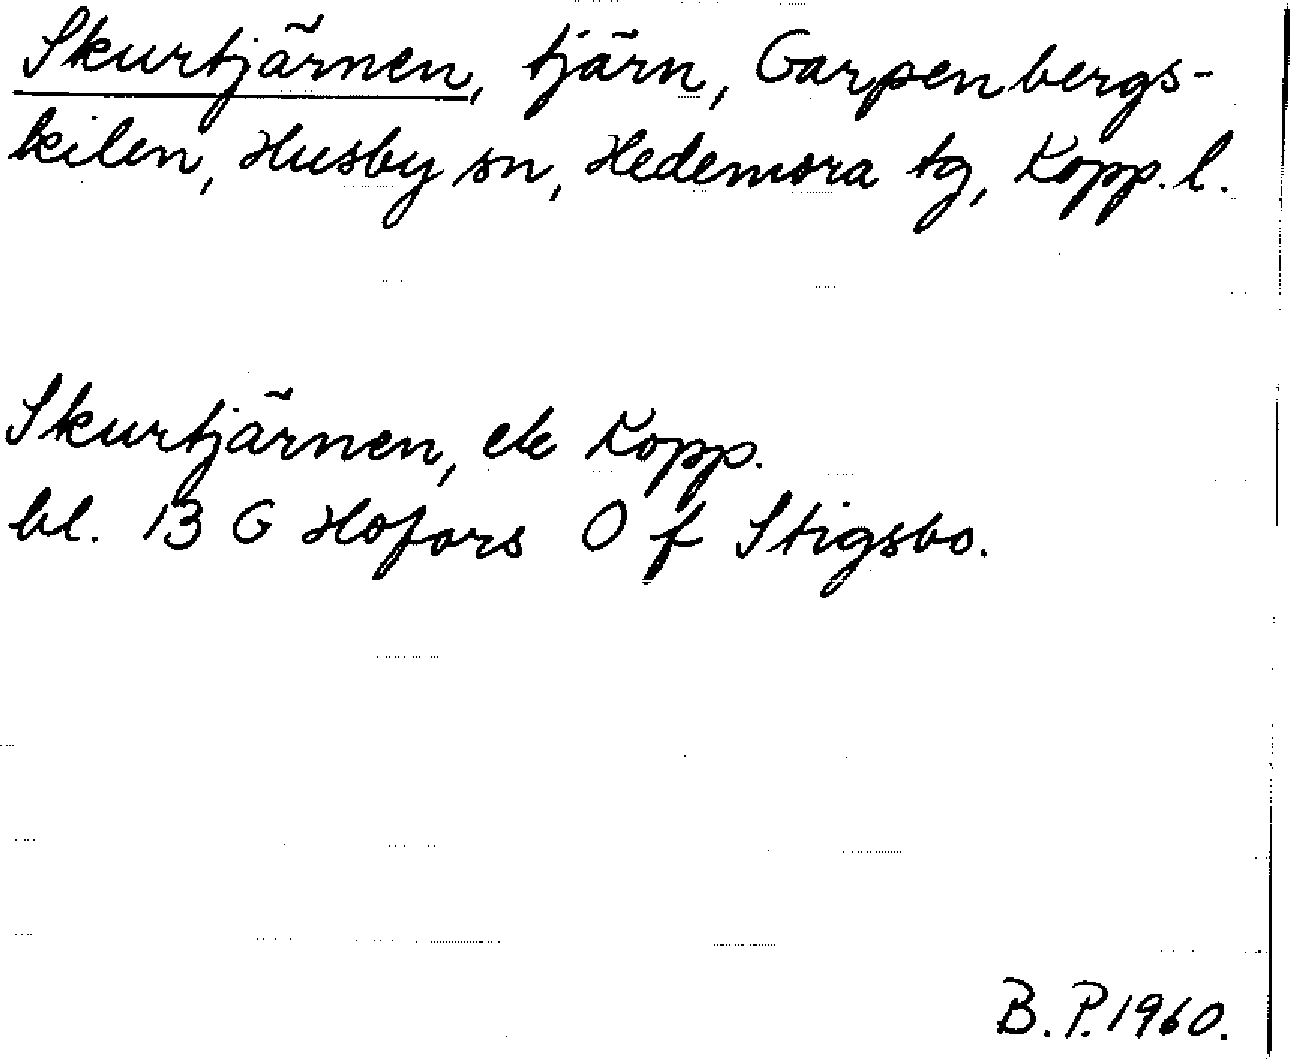 Skurtjärnen, tjärn, Garpenbergs-
kilen, Husby sn, Hedemora tg, Kopp. l.
Skurtjärnen, ek Kopp.
bl. 13 G Hofors O f Stigsbo.
B. P. 1960.